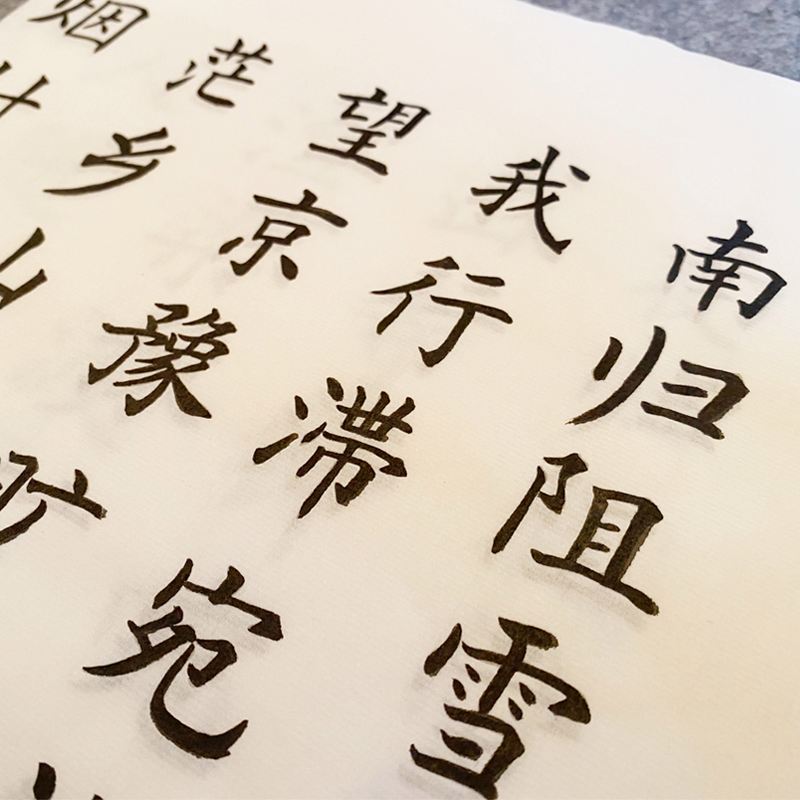 南归阻雪
我行滞宛
望京豫
茫乡
烟